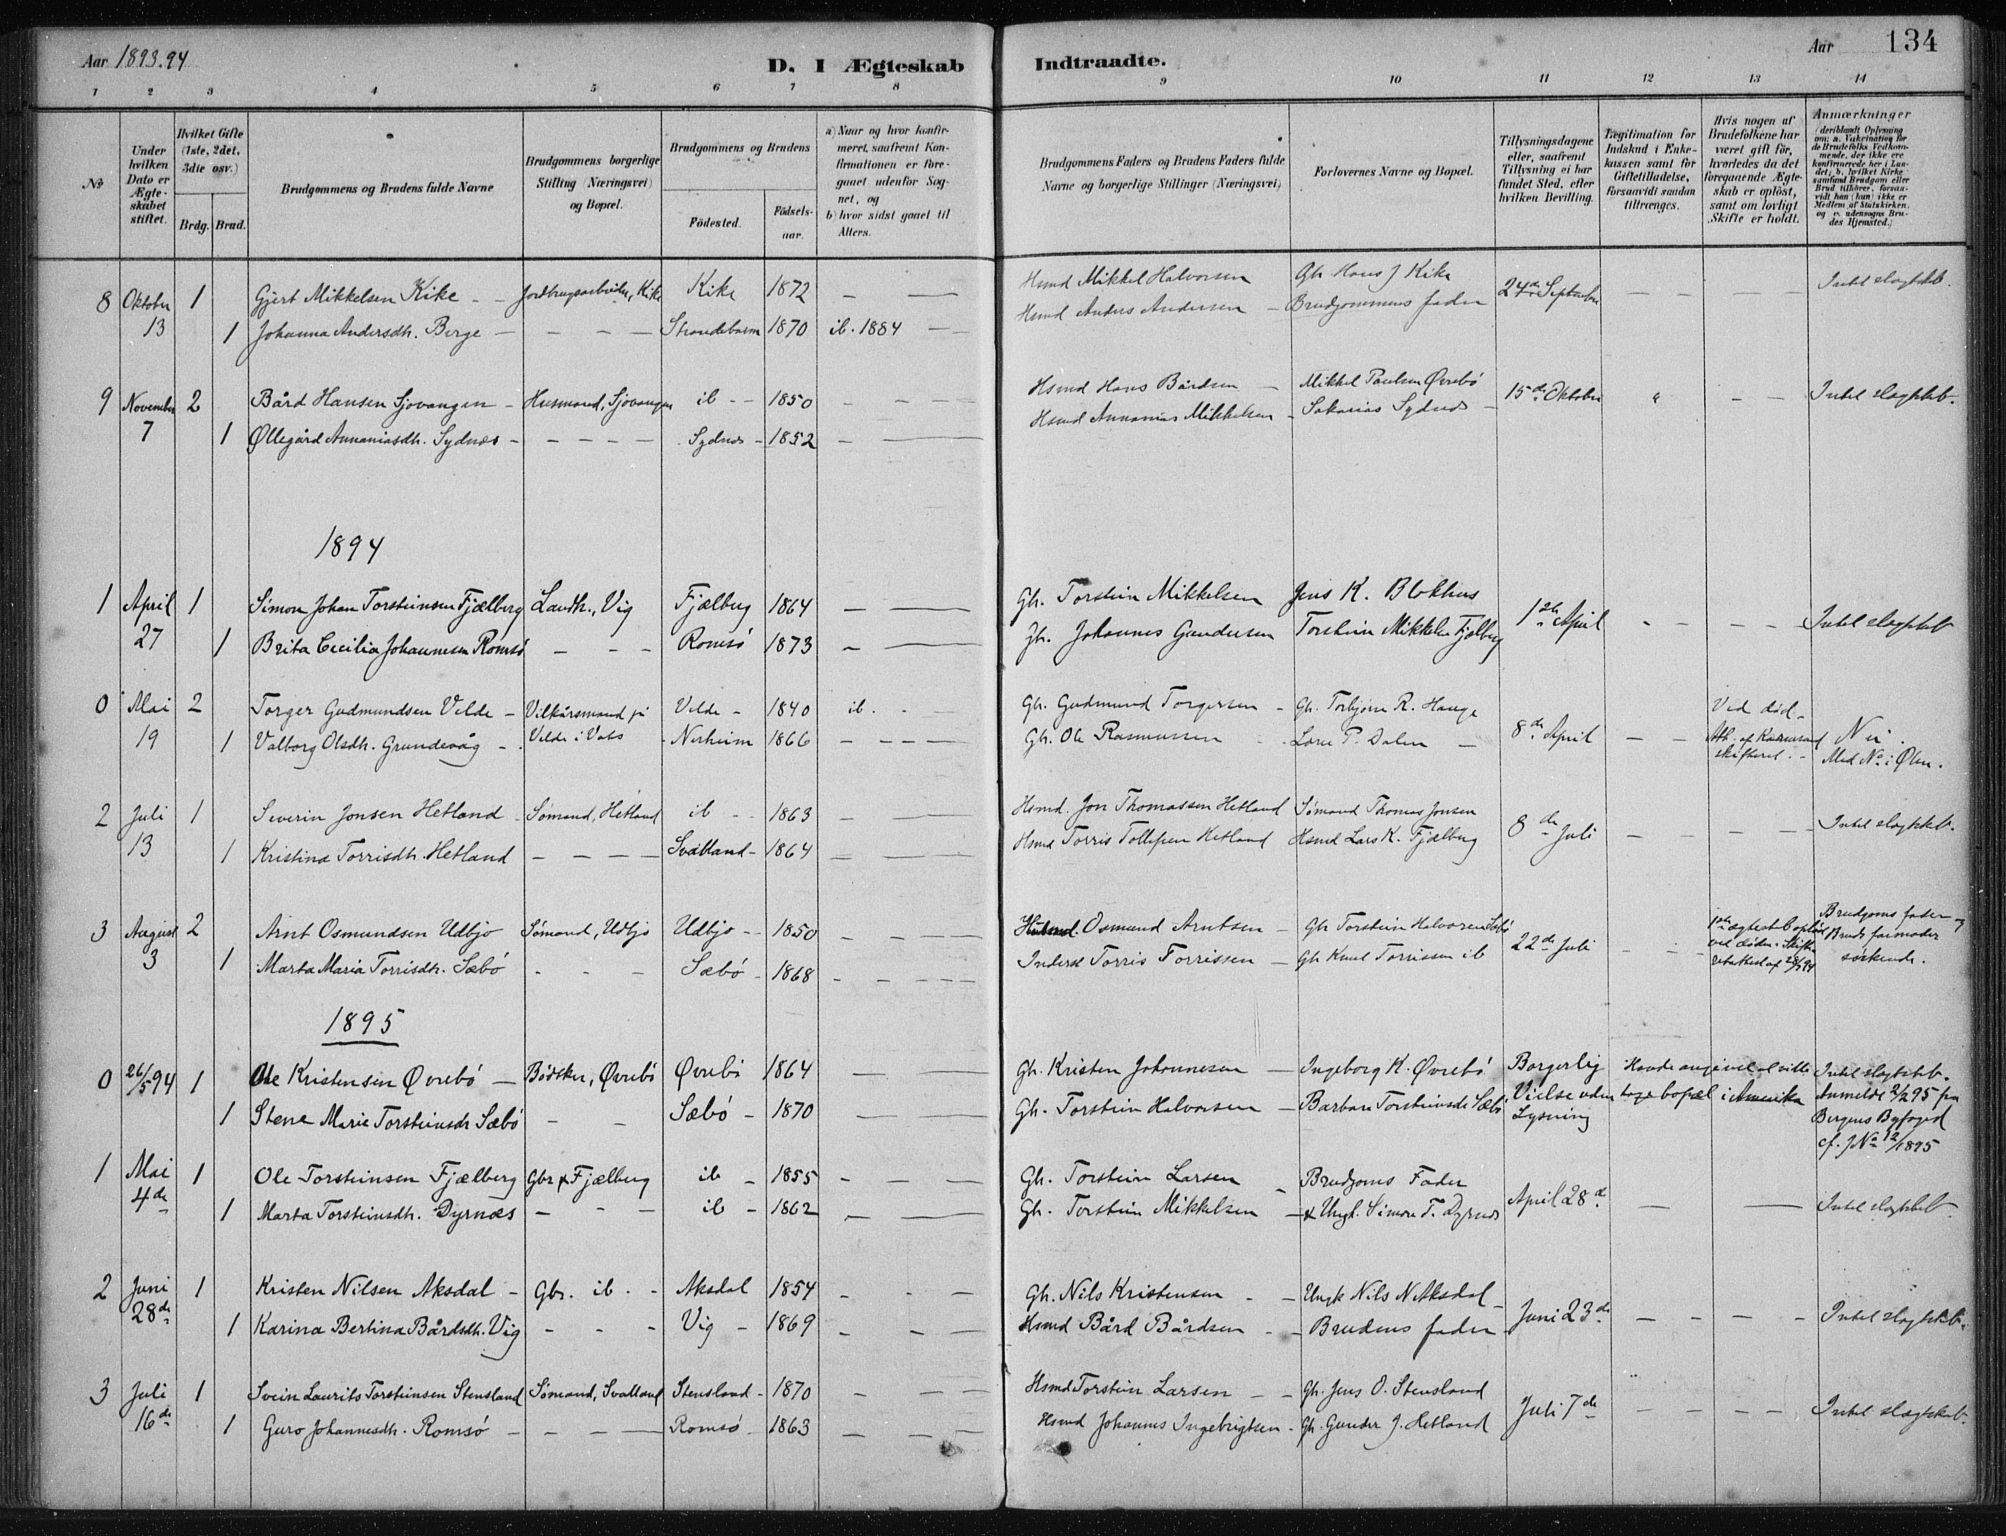 Aar 1893.94
D. I Ægteskab Indtraadte.
Aar 134
1 2 3 4 5 6 7 8 9 10 11 12 13 14
No
Under hvilken Dato er Ægteskabet stiftet.
Hvilket Gifte (1ste, 2det, 3die osv.)
Brdg. Brud.
Brudgommens og Brudens fulde Navne
Brudgommens borgerlige Stilling (Næringsvei) og Bopæl.
Brudgommens og Brudens
Födested. Födsels-aar.
a) Naar og hvor konfirmeret, saafremt Konfirmationen er foregaaet udenfor Sognet, og
b) hvor sidst gaaet til Alters.
Brudgommens Faders og Brudens Faders fulde Navne og borgerlige Stillinger (Næringsvei)
Forlovernes Navne og Bopæl.
Tillysningsdagene eller, saafremt Tillysning ei har fundet Sted, efter hvilken Bevilling.
Lægitimation for Indskud i Enkekassen samt for Giftetilladelse, forsaavidt saadan tiltrænges.
Hvis nogen af Brudefolkene har været gift för, hvorledes da det foregaaende Ægteskab er oplöst, samt om lovligt Skifte er holdt.
Anmærkninger (deriblandt Oplysning om: a. Vakcination for de Brudefolks Vedkommende, der ikke ere konfirmerede her i Landet; b. hvilket Kirkesamfund Brudgom eller Brud tilhörer, forsaavidt han (hun) ikke er Medlem af Statskirken, og c. udensogns Brudes Hjemsted.)
8 Oktober 1 Gjert Mikkelsen Kike - - Jordbrugsarbeider, Kike Kike 1872 - - Hsmd Mikkel Halvorsen Gbr Hans J Kike 24de September - - - Intet slagtskb.
13 1 Johanna Andersdh. Berge - - - - - Strandebarm 1870 ib. 1884 - - Hsmd Anders Andersen - Brudgommens fader
9 November 2 Bård Hansen Sjovangen - Husmand, Sjovangen ib - - 1850 - - - - Hsmd Hans Bårdsen - Mikkel Paulsen Øvrebö 15de Oktober " - - Intet slagtskb.
7 1 Øllegård Annaniasdh. Sydnæs - - - - - Sydnæs - 1852 - - Hsmd Annanias Mikkelsen - Sakarias Sydnes -
1894
1 April 1 Simon Johan Torsteinsen Fjælberg Landh., Vig Fjælberg 1864 - - Gbr. Torstein Mikkelsen Jens K. Blokhus 1ste April - - - - Intet slagtskb
27 1 Brita Cecilia Johannesen Romsö - - - Romsö 1873 - - Gbr. Johannes Gundersen Torstein Mikkelsen Fjælberg
0 Mai 2 Torger Gudmundsen Velde - Vilkårsmand på Velde - 1840 ib. - - Gbr. Gudmund Torgersen - Gbr. Torbjörn R. Hauge 8de April - - Ved död - Nei.
19 1 Valborg Olsdh. Grundevåg - Velde i Vats Nerheim 1866 - - - - Gbr. Ole Rasmussen - Lars P. Dalen - Att. af skifteret. - Med No i Ølen.
2 Juli 1 Severin Jonsen Hetland - Sømand, Hetland ib - - 1863 - - Hsmd. Jon Thomassen Hetland Sømand Thomas Jonsen 8de Juli - - - Intet slagtskb.
13 1 Kristina Torrisdh. Hetland - - - - Svalland - 1864 - - Hsmd Torris Tollefsen Hetland Hsmd Lars K. Fjælberg
3 August 2 Arnt Osmundsen Udbjo Sømand, Udbjo Udbjo - - 1850 - - - Osmund Arntsen - Gbr Torstein Halvorsen Sebö 22de Juli - - 1ste ægteskb oplöst ved döden. Skifte 28/7 94 Brudgoms fader og Bruds farmoder søskende.
3 1 Marta Maria Torrisdh. Sæbö - - - Sæbö - 1868 - - - Inderst Torris Torrissen - Gbr Knut Torrissen ib
1895
0 26/5 94 1 Ole Kristensen Øvrebö - Bödtker, Øvrebö Øvrebö 1864 - - Gbr. Kristen Johannesen - Ingeborg K. Øvrebö Borgerlig Vielse uden Lysning Havde angivet at ville tage bopæl i Amerika Intet slagtskb. Anmeldt 2/2 95 fra Bergens Byfoged cf. J No 12/1895
1 Stene Marie Torsteinsdr Sæbö - - Sæbö - 1870 - - Gbr. Torstein Halvorsen - Barbara Torsteinsdr Sæbö
1 Mai 1 Ole Torsteinsen Fjælberg Gbr Fjælberg ib - 1855 - - Gbr. Torstein Larsen - Brudgoms Fader April 28de - - Intet slagtskb.
4de 1 Marta Torsteinsdh. Dyrnæs - - - ib - 1862 - - Gbr. Torstein Mikkelsen - & Ungk. Simon T. Dyrnæs
2 Juni 1 Kristen Nilsen Aksdal - Gbr. ib. - Aksdal 1854 - - - Gbr. Nils Kristensen - - Ungk Nils N Aksdal - Juni 23de - - - - Intet slagtskb.
28de 1 Karina Bertina Bårdsdh. Vig - - - Vig - 1869 - - - Hsmd Bård Bårdsen - - Brudens fader
3 Juli 1 Svein Laurits Torsteinsen Stensland Sømand, Svalland Stensland - 1870 - - - Hsmd Torstein Larsen - - Gbr. Jens O. Stensland Juli 7de - - - - Intet slægtskab.
16de 1 Guro Johannesdh. Romsö - - - - Romsö - 1863 - - - Hsmd Johannes Ingebrigtsen - Gbr. Gunder J. Hetland